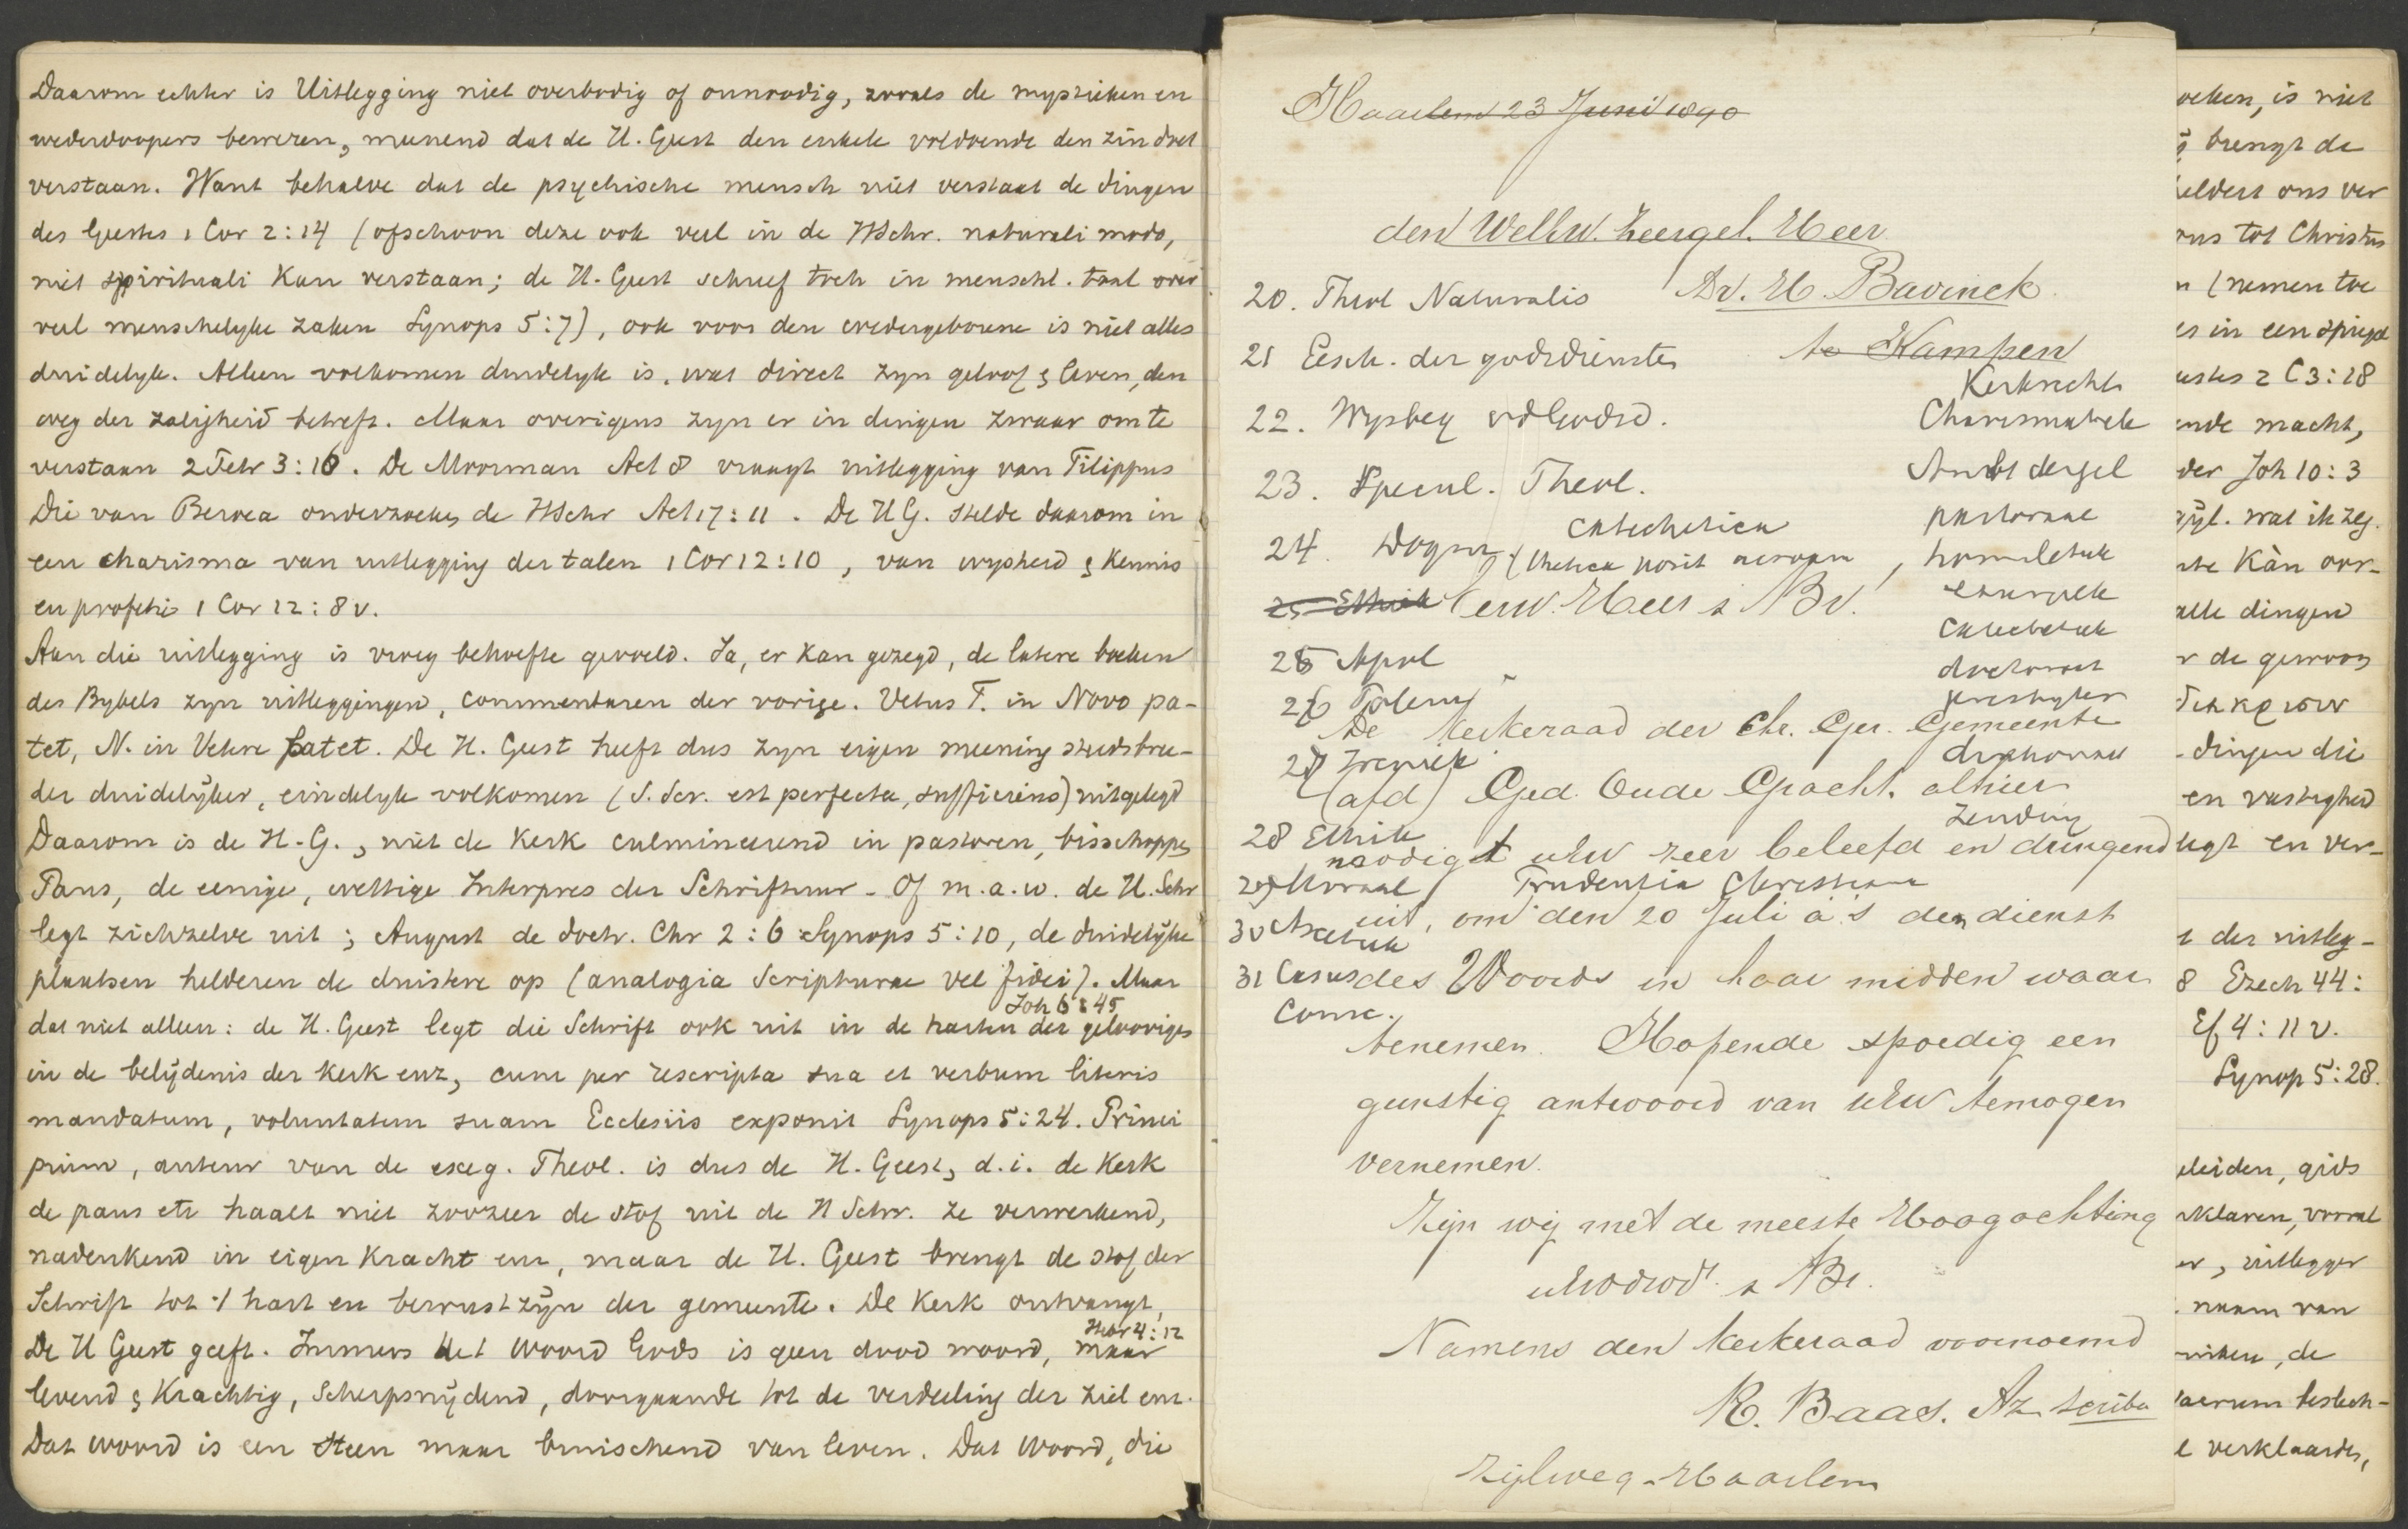 Daarom echter is Uitlegging niet overbodig of onnoodig, zooals de mystieken en
wederdoopers beweren, meenend dat de H. Geest den enkele voldoende den zin doet
verstaan. Want behalve dat de psychische mensch niet verstaat de dingen
des Geestes 1 Cor 2:14 (ofschoon deze ook veel in de HSchr. naturali modo,
niet spirituali kan verstaan; de H. Geest schreef toch in menschl. taal over
veel menschelyke zaken Synops 5:7), ook voor den wedergeborene is niet alles
duidelyk. Alleen volkomen duidelyk is, wat direct zyn geloof & leven, den
weg der zaligheid betreft. Maar overigens zyn er in dingen zwaar om te
verstaan 2 Petr 3:16. De Moorman Act 8 vraagt uitlegging van Filippus
Die van Beroea onderzoeken de HSchr Act 17:11. De HG. stelde daarom in
een charisma van uitlegging der talen 1 Cor 12:10, van wysheid & kennis
en profetie 1 Cor 12:8 v.
Aan die uitlegging is vroeg behoefte gevoeld. Ja, er kan gezegd, de latere boeken
des Bybels zyn uitleggingen, commentaren der vorige. Vetus T. in Novo pa-
tet, N. in Vetere latet. De H. Geest heeft dus zyn eigen meening steeds bree-
der duidelijker, eindelyk volkomen (S. Scr. est perfecta, sufficiens) uitgelegd
Daarom is de H.G., niet de Kerk culmineerend in pastoren, bisschoppen
Paus, de eenige, wettige Interpres der Schriftuur - Of m.a.w. de H. Schr
legt zichzelve uit; August de doctr. Chr 2:6 Synops 5:10, de duidelijke
plaatsen helderen de duistere op (analogia Scripturae vel fidei). Maar
Joh 6:45
dat niet alleen: de H. Geest legt die Schrift ook uit in de harten der geloovigen
in de belijdenis der kerk enz, cum per rescripta sua et verbum literis
mandatum, voluntatem suam Ecclesiis exponit Synops 5:24. Princi
pium, auteur van de exeg. Theol. is dus de H. Geest, d.i. de Kerk
de paus etc haalt niet zoozeer de stof uit de H Schr. ze verwerkend,
nadenkend in eigen kracht enz, maar de H. Geest brengt de stof der
Schrift tot 't hart en bewustzijn der gemeente. De Kerk ontvangt,
Hebr 4:12
De H Geest geeft. Immers het woord Gods is geen dood woord, maar
levend & krachtig, scherpsnijdend, doorgaande tot de verdeeling der ziel enz.
Dat woord is een steen maar bruischend van leven. Dat woord, die
Haarlem 23 Juni 1890
den Weleerw. Zeergel. Heer
Dr. H Bavinck
te Kampen
20. Theol Naturalis
21 Gesch. der godsdiensten
22. Wysbeg vd Godsd.
23. Specul. Theol.
24. Dogm
Catechetica
25 Ethiek
25 Apol
26 Polem
27 Ireniek
28 Ethiek
29 Moraal Prudentia Christiana
30 Ascetiek
31 Casus
Consc.
Kerkrecht
Charismatiek
Ambt dergel
pastoraal
homiletiek
liturgiek
Catechetiek
doctoraat
presbyter
diakonaal
Zending
Eerw. Heer & Br.
De Kerkeraad der Chr. Ger. Gemeente
(afd) Ged. Oude Gracht. alhier
noodigt uEw zeer beleefd en dringend
uit, om den 20 Juli a's den dienst
des Woords in haar midden waar
tenemen. Hopende spoedig een
gunstig antwoord van uEw temogen
vernemen.
Zijn wij met de meeste Hoogachting
uEwdwd. & Br.
Namens den kerkeraad voornoemd
K. Baas. Az scriba
Zijlweg - Haarlem
oeken, is niet
brengt de
heldert ons ver
ons tot Christus
n (nemen toe
es in een spiegel
estes 2 C 3:18
ende macht,
der Joh 10:3
zijl. wat ik zeg.
nte kàn oor-
alle dingen
r de gewoon
- dingen die
en vastigheid
legt en ver-
t der uitleg-
8 Ezech 44:
Ef 4:11 v.
Synop 5:28.
eleiden, gids
rklaren, vooral
er, uitlegger
naam van
niken, de
aerum beslech-
e verklaarder,